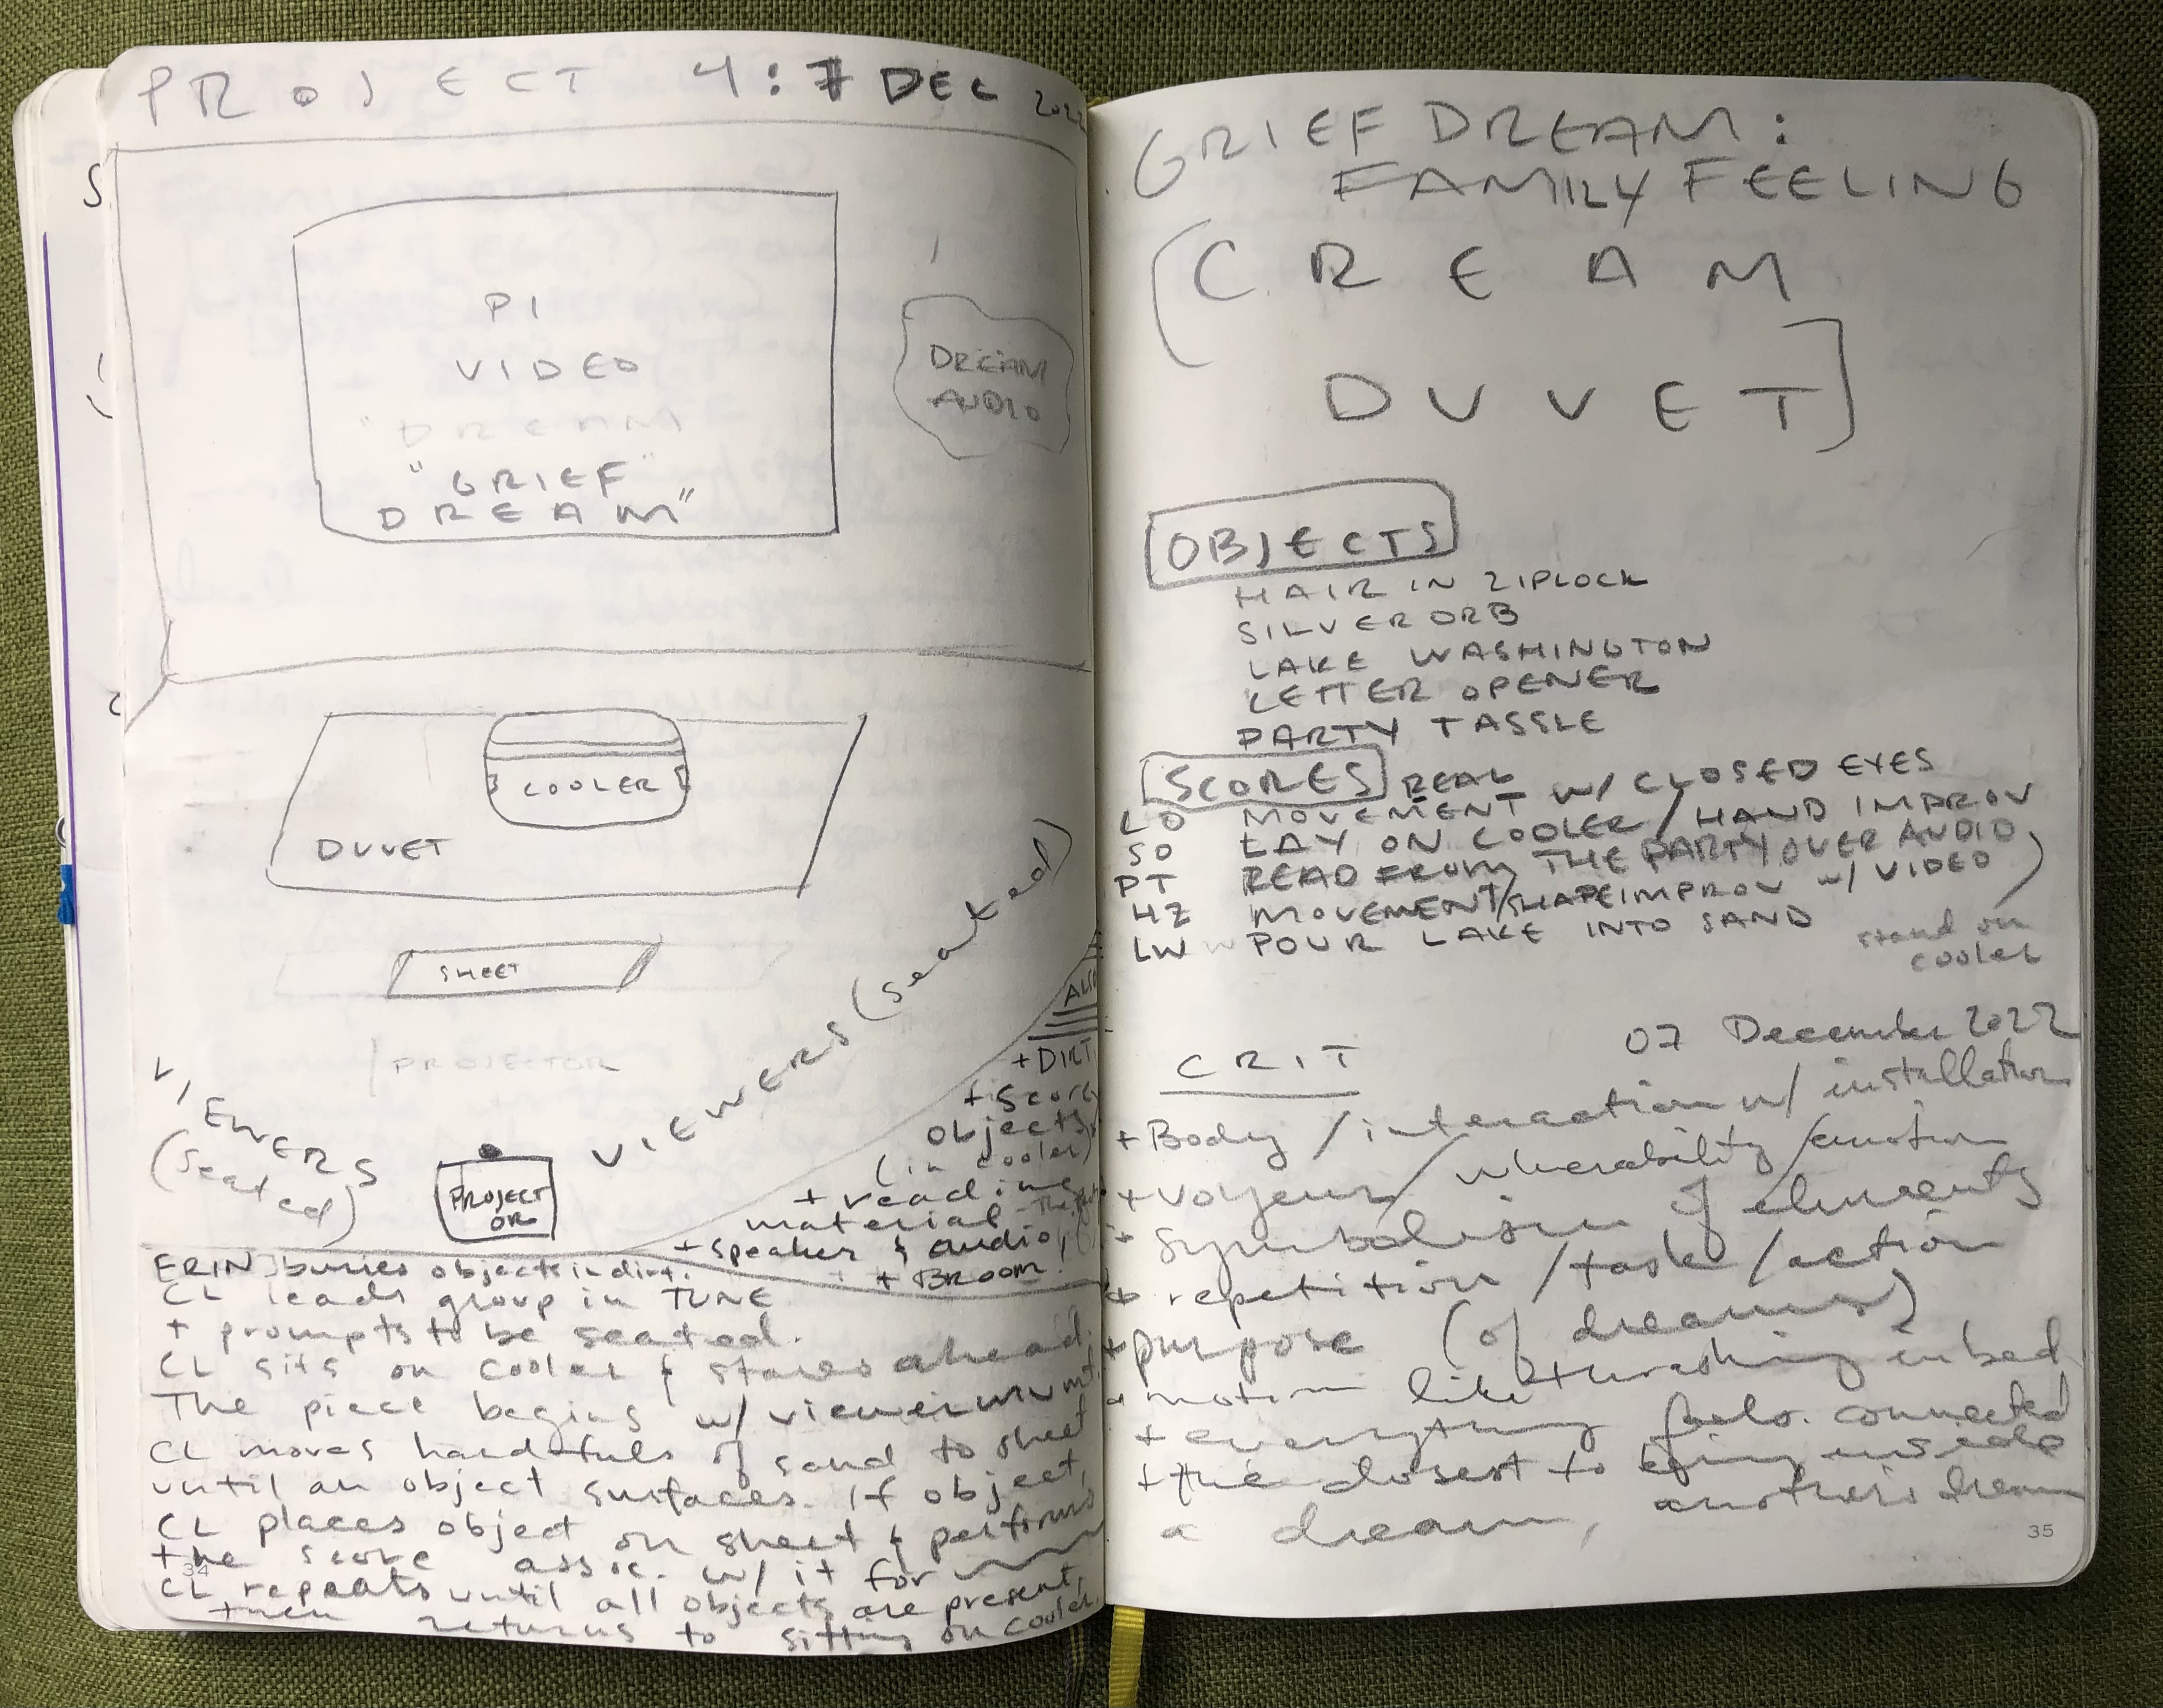 PROJECT 4: 7 DEC 2022
PI
VIDEO
"DREAM
"GRIEF"
DREAM"
DREAM
AUDIO
COOLER
DUVET
SHEET
/PROJECTOR
VIEWERS
(seated)
VIEWERS (seated)
PROJECT
OR
+ DIRT
+ score
objects
(in cooler)
+ reading
material - The
+ speaker & audio,
+ BROOM
ERIN buries objects in dirt.
CL leads group in TUNE
+ prompts to be seated.
CL sits on cooler & stares ahead.
The piece begins w/ viewer mvmt.
CL moves handfuls of sand to sheet
until an object surfaces. If object,
CL places object on sheet & performs
the score assoc. w/ it for
34
CL repeats until all objects are present,
then returns to sitting on cooler.
GRIEF DREAM:
FAMILY FEELING
[CREAM
DUVET]
OBJECTS
HAIR IN ZIPLOCK
SILVER ORB
LAKE WASHINGTON
LETTER OPENER
PARTY TASSLE
SCORES REAL
LO MOVEMENT W/ CLOSED EYES
SO LAY ON COOLER / HAND IMPROV
PT READ FROM THE PARTY OVER AUDIO
HZ MOVEMENT/SHAPE IMPROV w/ VIDEO)
LW POUR LAKE INTO SAND
stand on
cooler
07 December 2022
CRIT
+ Body / interaction w/ installation
+ voyeur / vulnerability / emotion
+ symbolism of elements
+ repetition / task / action
+ purpose (of dreams)
+ motion like thrashing in bed
+ everything feels connected
+ the closest to being inside
a dream, another's dream
35